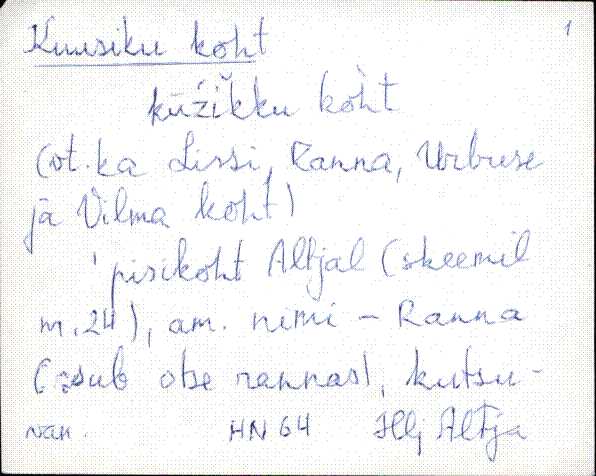 Kuusiku koht 1
kūžikku koht
(vt. ka Lissi, Ranna, Urbuse
ja Vilma koht)
pisikoht Altjal (skeemil
nr. 24), am. nimi - Ranna
(asub otse rannas), kutsu-
van. HN 64 Hlj Altja